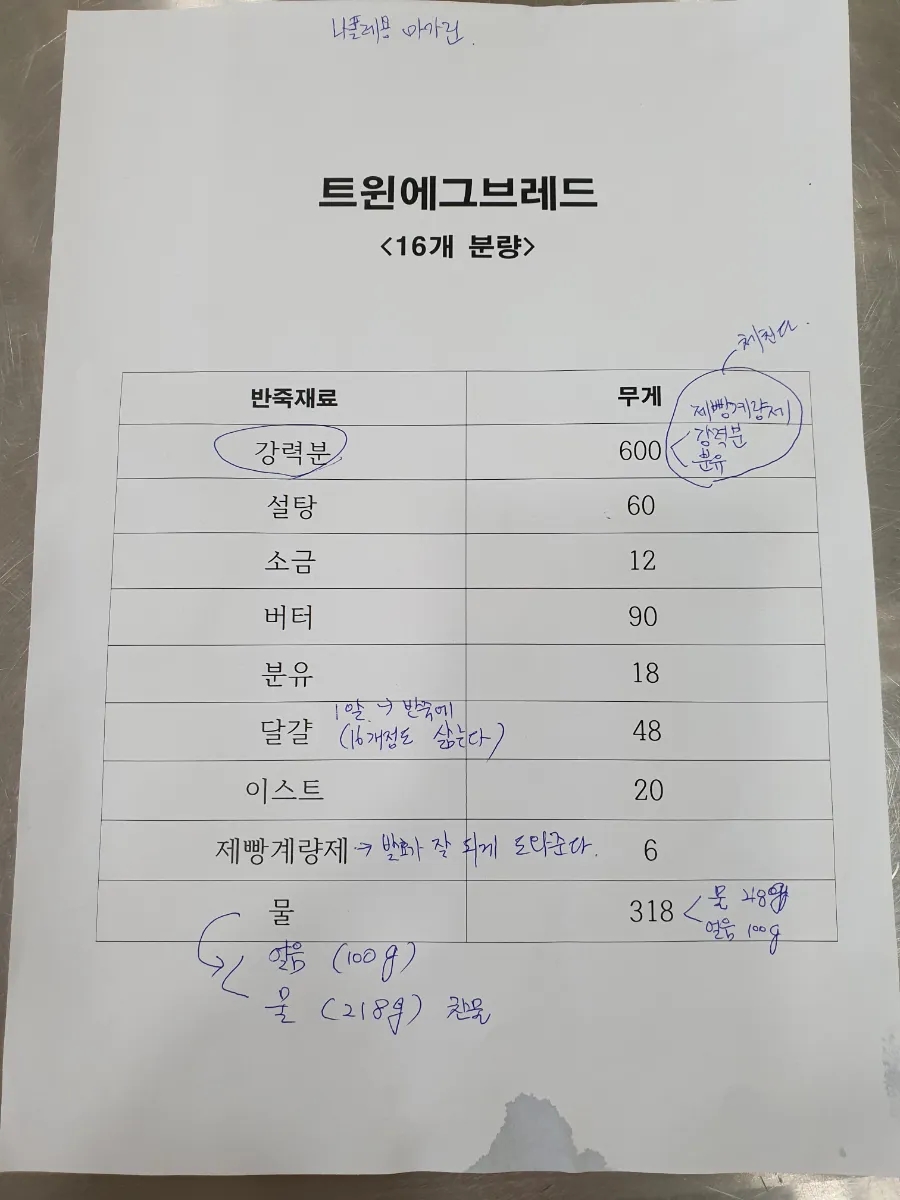 나폴레용 마가린.
트윈에그브레드
<16개 분량>
체친다.
반죽재료 무게 제빵계량제
강력분 600 강력분
분유
설탕 60
소금 12
버터 90
분유 18
1알 → 반죽에
달걀 (16개정도 삶는다) 48
이스트 20
제빵계량제 → 발효가 잘 되게 도와준다. 6
물 318 물 218g
얼음 100g
얼음 (100g)
물 (218g) 찬물